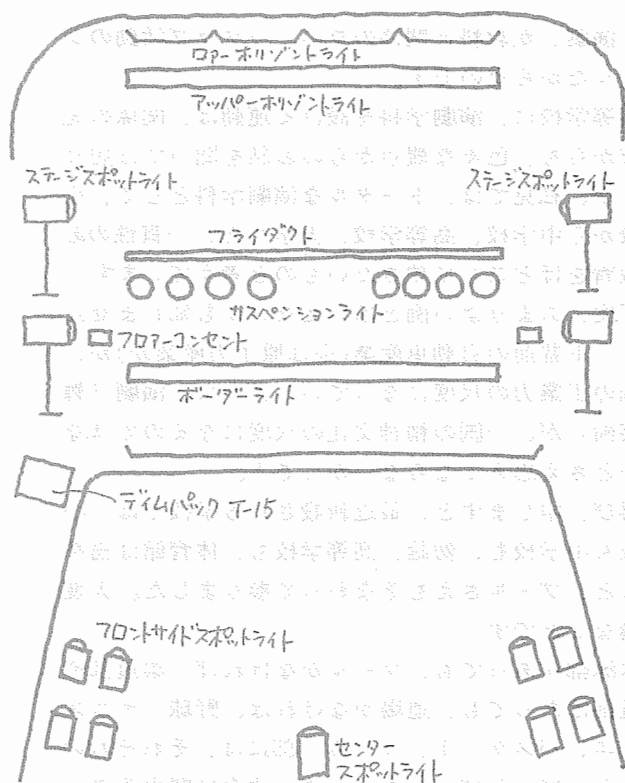 ロアーホリゾントライト
アッパーホリゾントライト
ステージスポットライト
ステージスポットライト
フライダクト
サスペンションライト
フロアーコンセント
ボーダーライト
ディムパック T-15
フロントサイドスポットライト
センター
スポットライト